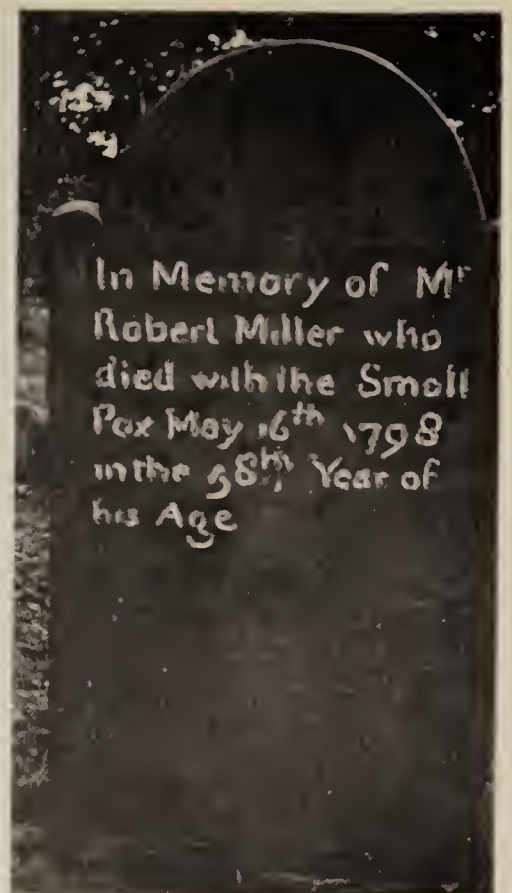 In Memory of Mr
Robert Miller who
died with the Small
Pox May 16th 1798
in the 58th Year of
his Age